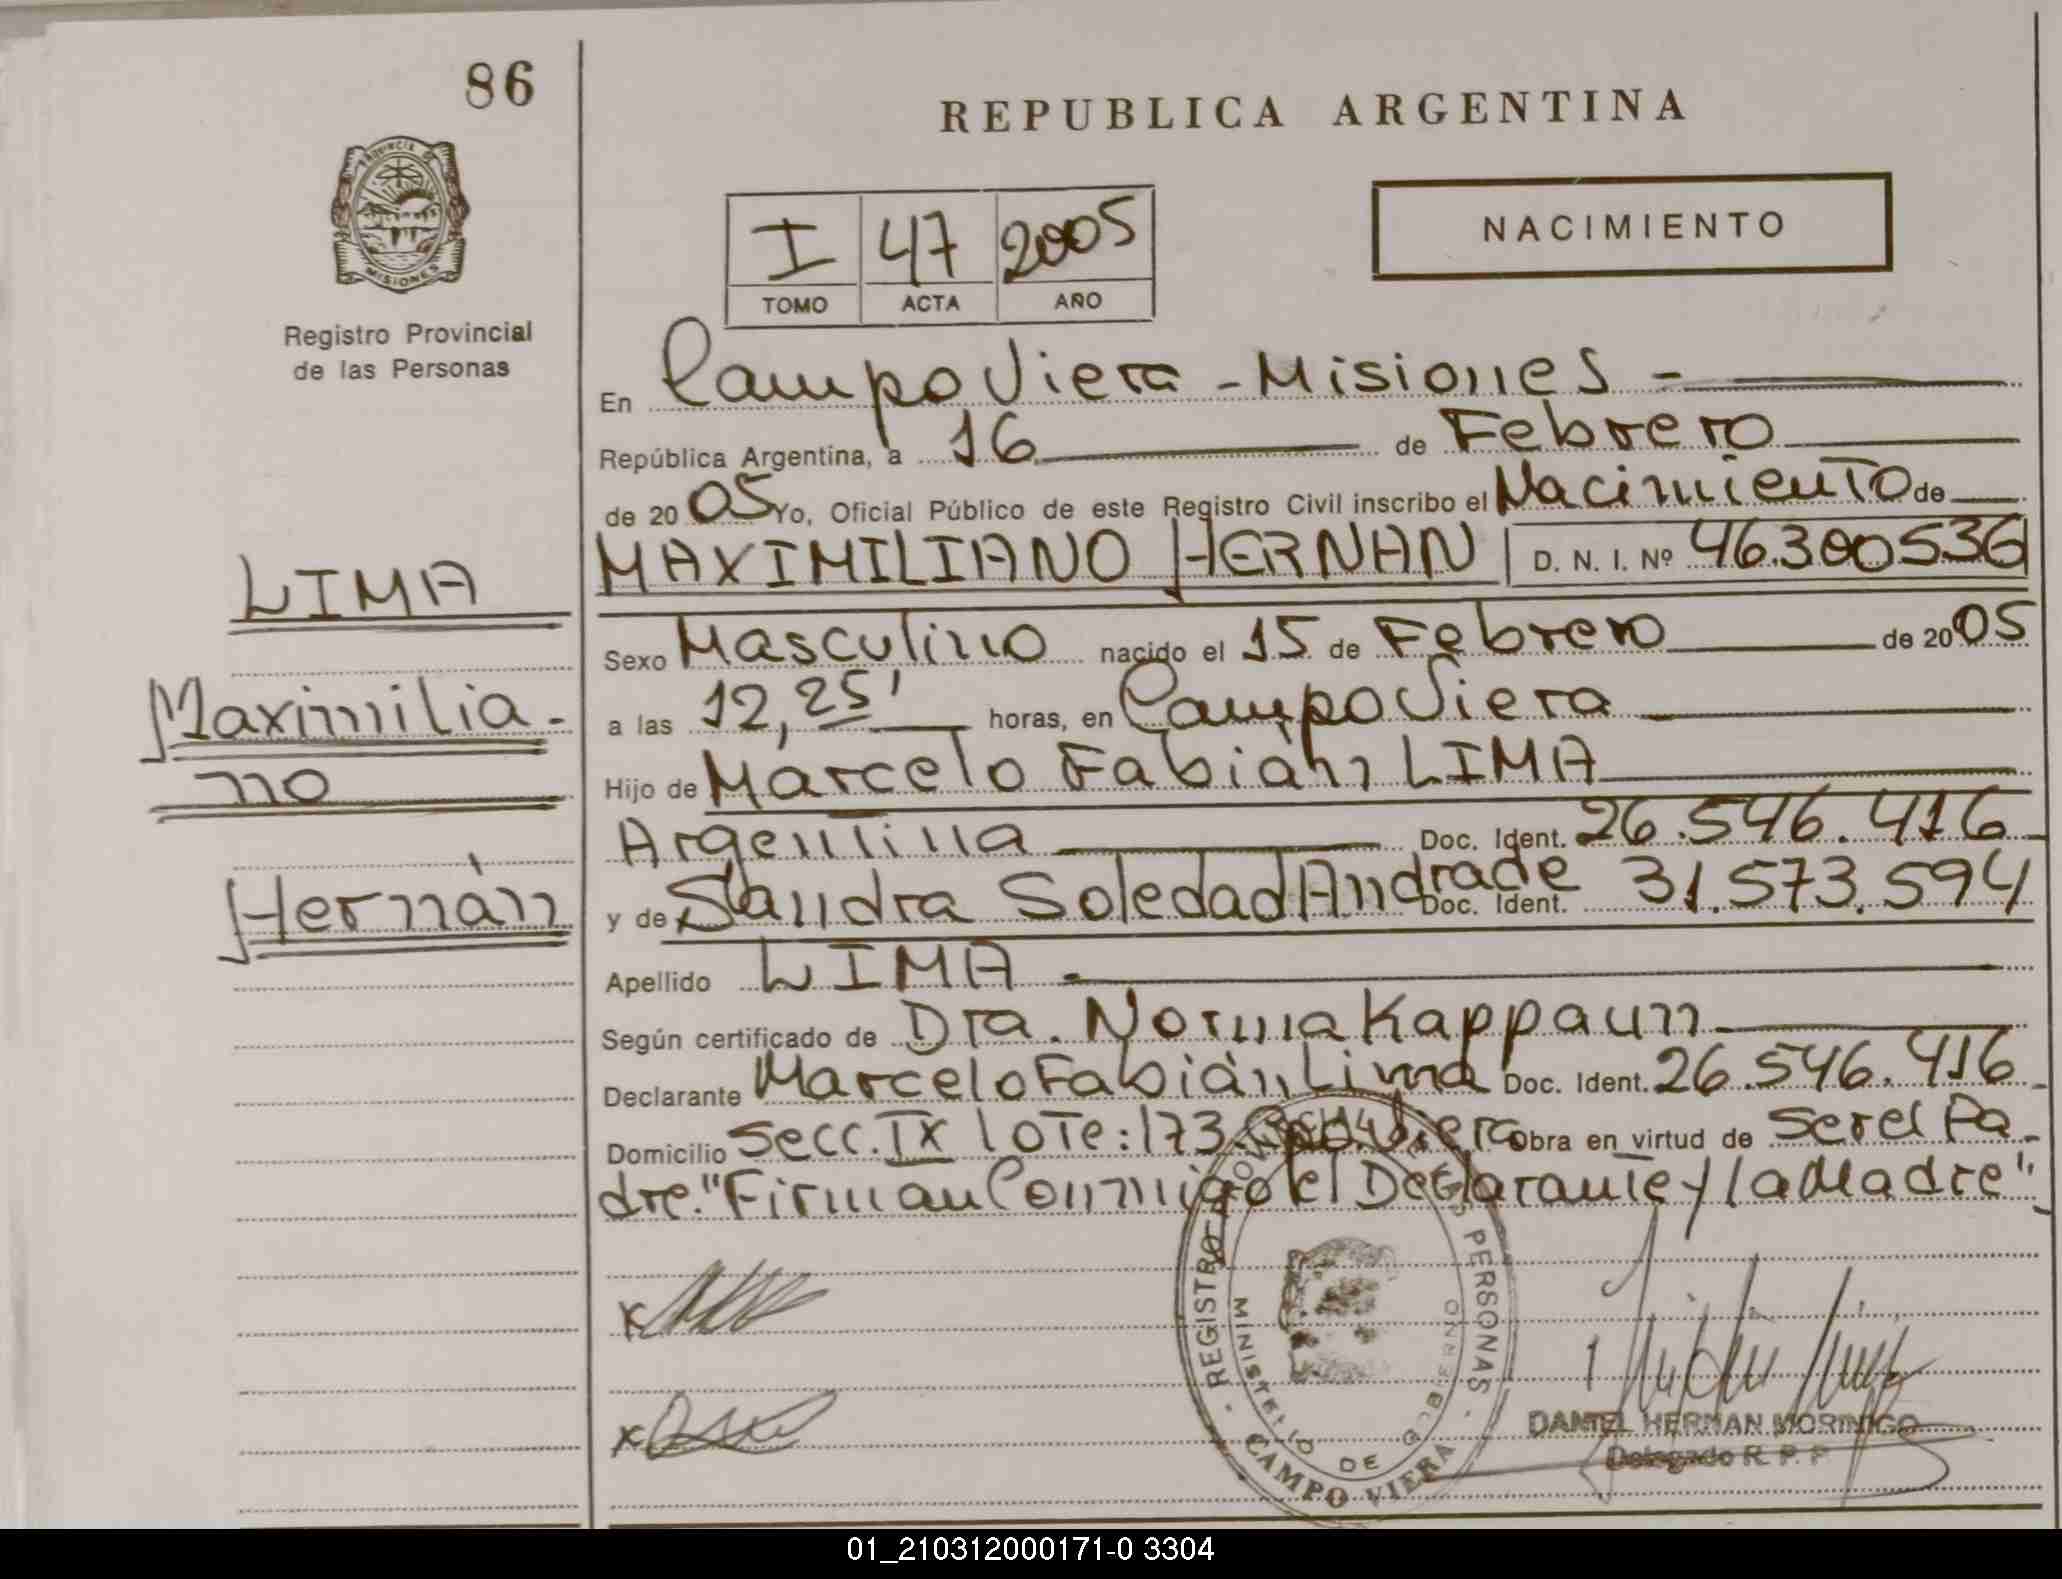 86
PROVINCIA DE
MISIONES
Registro Provincial
de las Personas
REPUBLICA ARGENTINA
I 47 2005
TOMO ACTA AÑO
NACIMIENTO
En Campo Viera - Misiones -
República Argentina, a 16 de Febrero
de 2005 Yo, Oficial Público de este Registro Civil inscribo el Nacimiento de
MAXIMILIANO HERNAN D. N. I. Nº 46.300536
LIMA
Maximilia-
no
Hernán
Sexo Masculino nacido el 15 de Febrero de 2005
a las 12,25' horas, en Campo Viera
Hijo de Marcelo Fabián LIMA
Argentina Doc. Ident. 26.546.416
y de Sandra Soledad Andrade Doc. Ident. 31.573.594
Apellido LIMA -
Según certificado de Dra. Norma Kappaun
Declarante Marcelo Fabián Lima Doc. Ident. 26.546.416
Domicilio Secc. IX lote: 173. Viera obra en virtud de ser el Pa-
dre. "Firman Conmigo el Declarante y la Madre"
x
x
REGISTRO PERSONAS
MINISTERIO DE GOBIERNO
CAMPO VIERA
DANIEL HERNAN MORINIGO
Delegado R. P. P
01_210312000171-0 3304